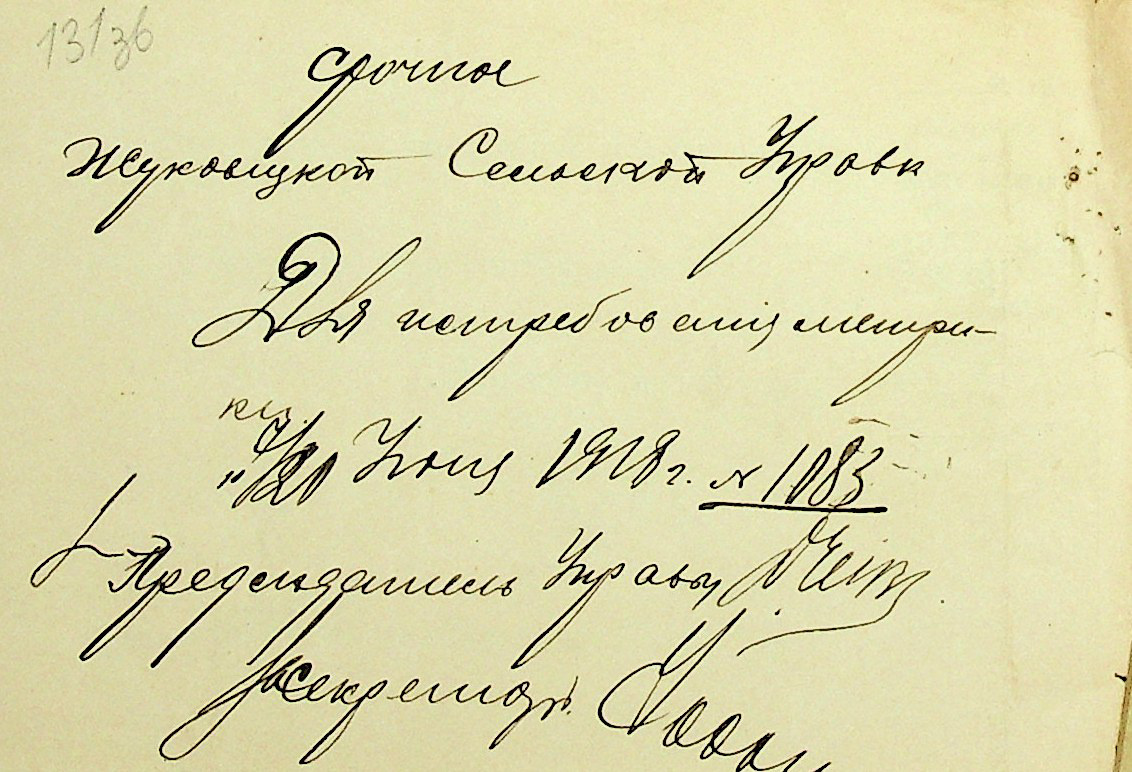 131 зв
Срочное
Жуковицкой Сельской Управѣ
Для истребованія метри-
ки.
"7/20 Іюня 1918 г. № 1083
Предсѣдатель Управы
Секретарь